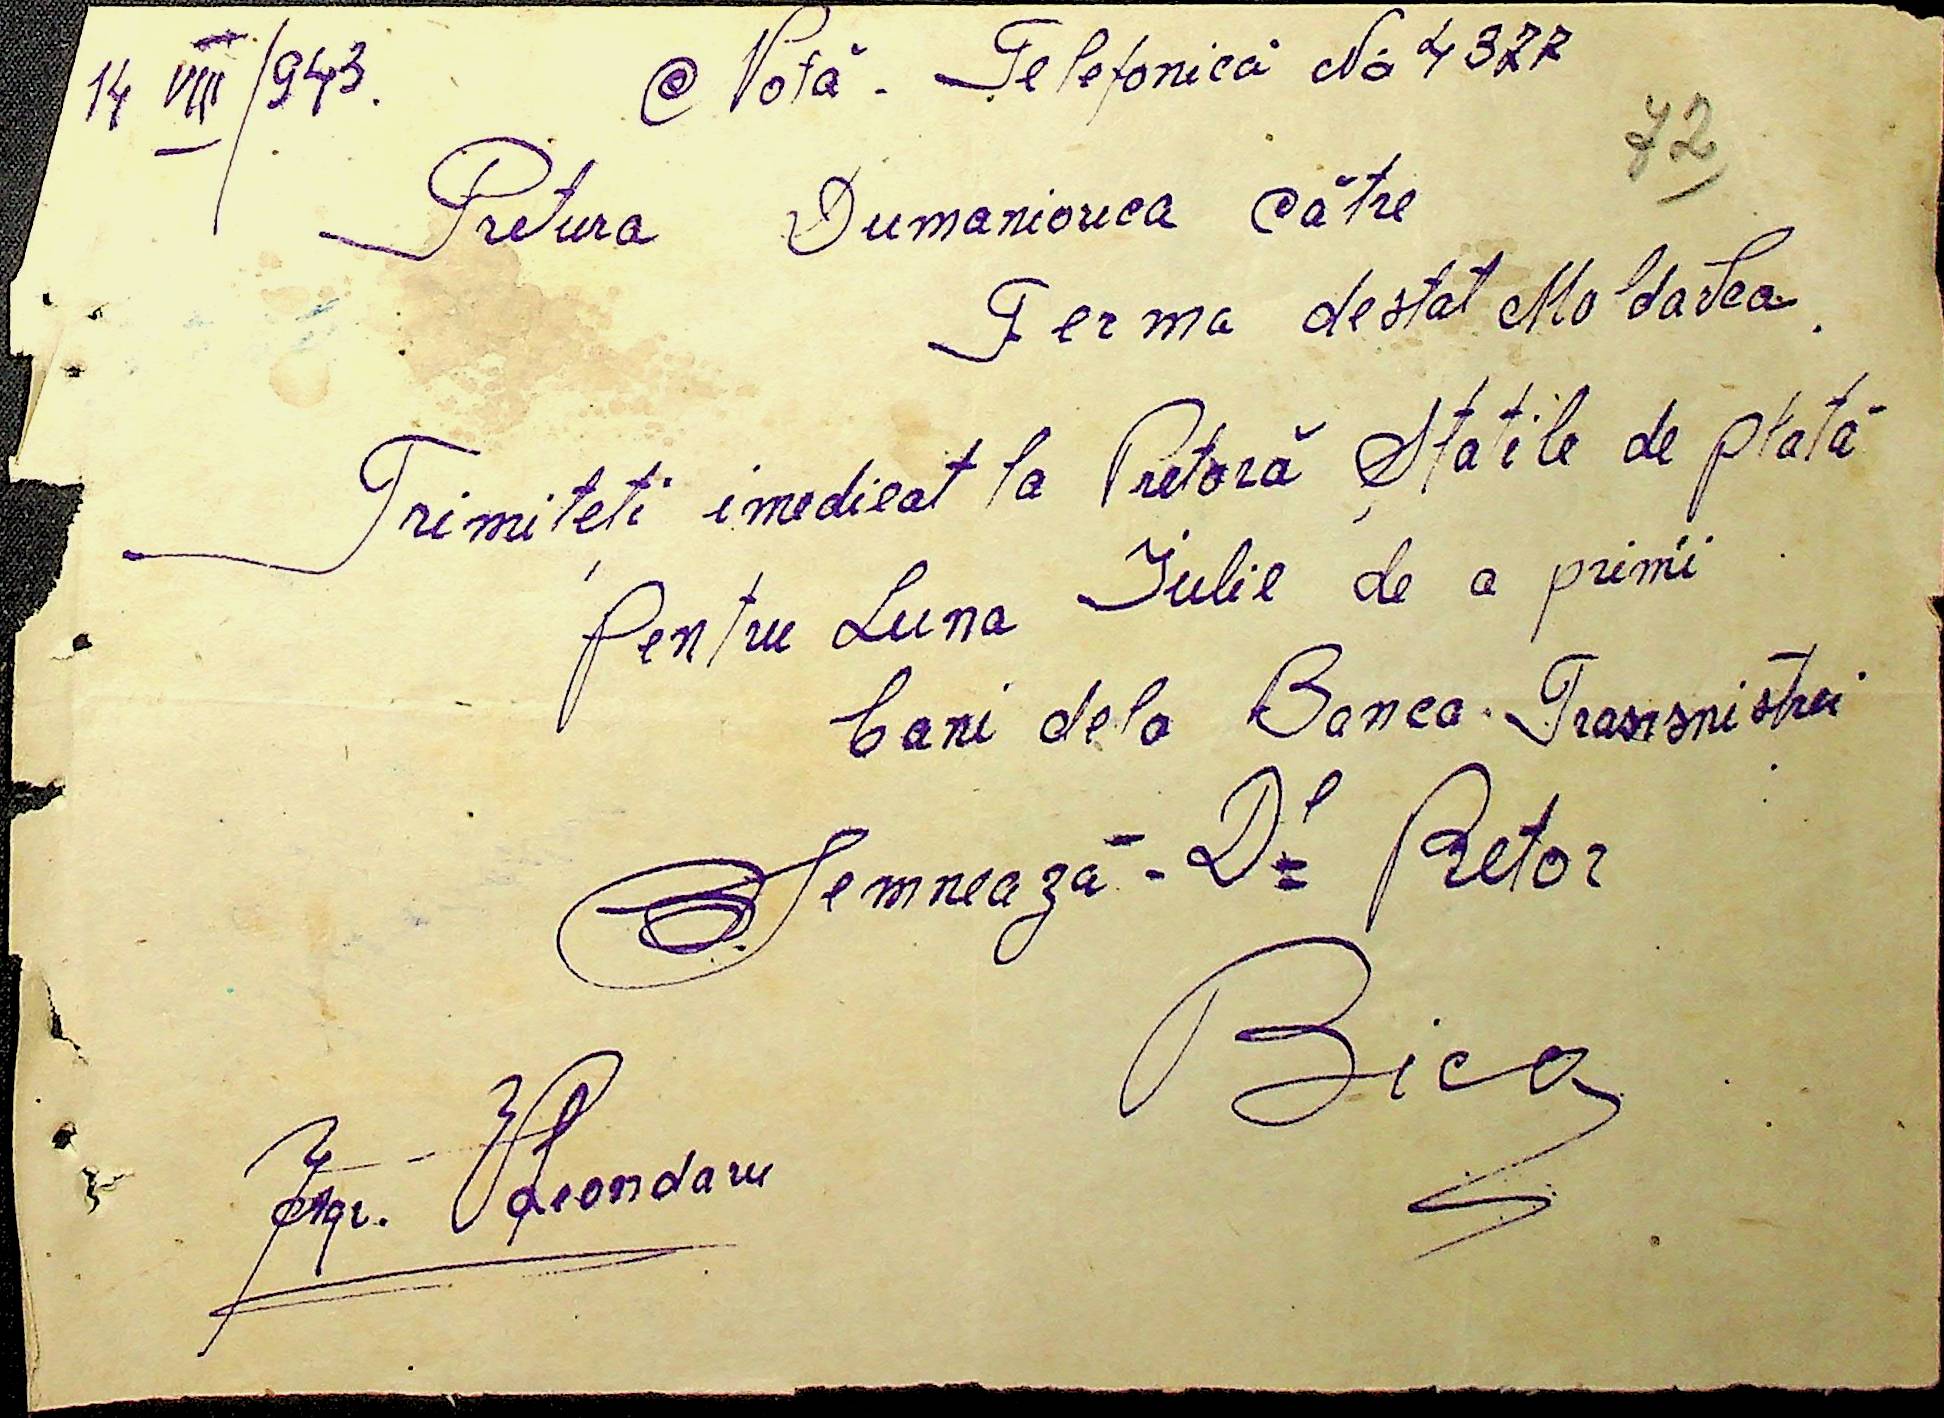 14 VIII/943. Notă - Telefonică No 4377
72
Pretura Dumaniouca către
Ferma destat Moldavca.
Trimiteți imedieat la PretorăȘtatile de plată
pentru Luna Iulie de a primi
bani dela Banca Transnistrei
Semnează - Dl Pretor
Bica
Agr. Leondaru